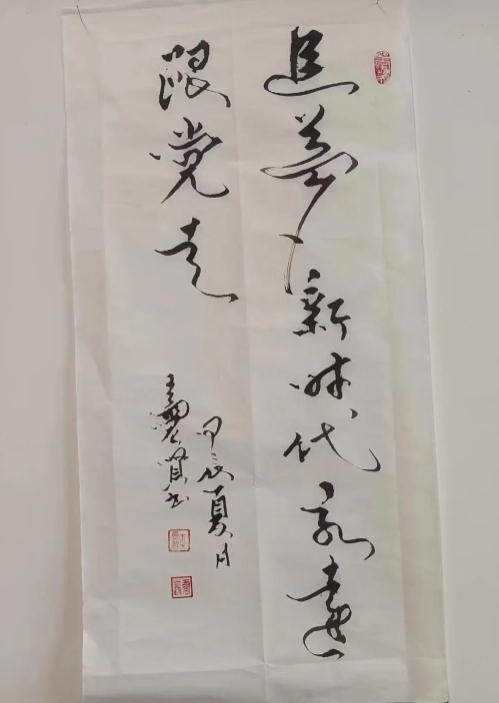 追梦新时代永远
跟党走
甲辰夏月